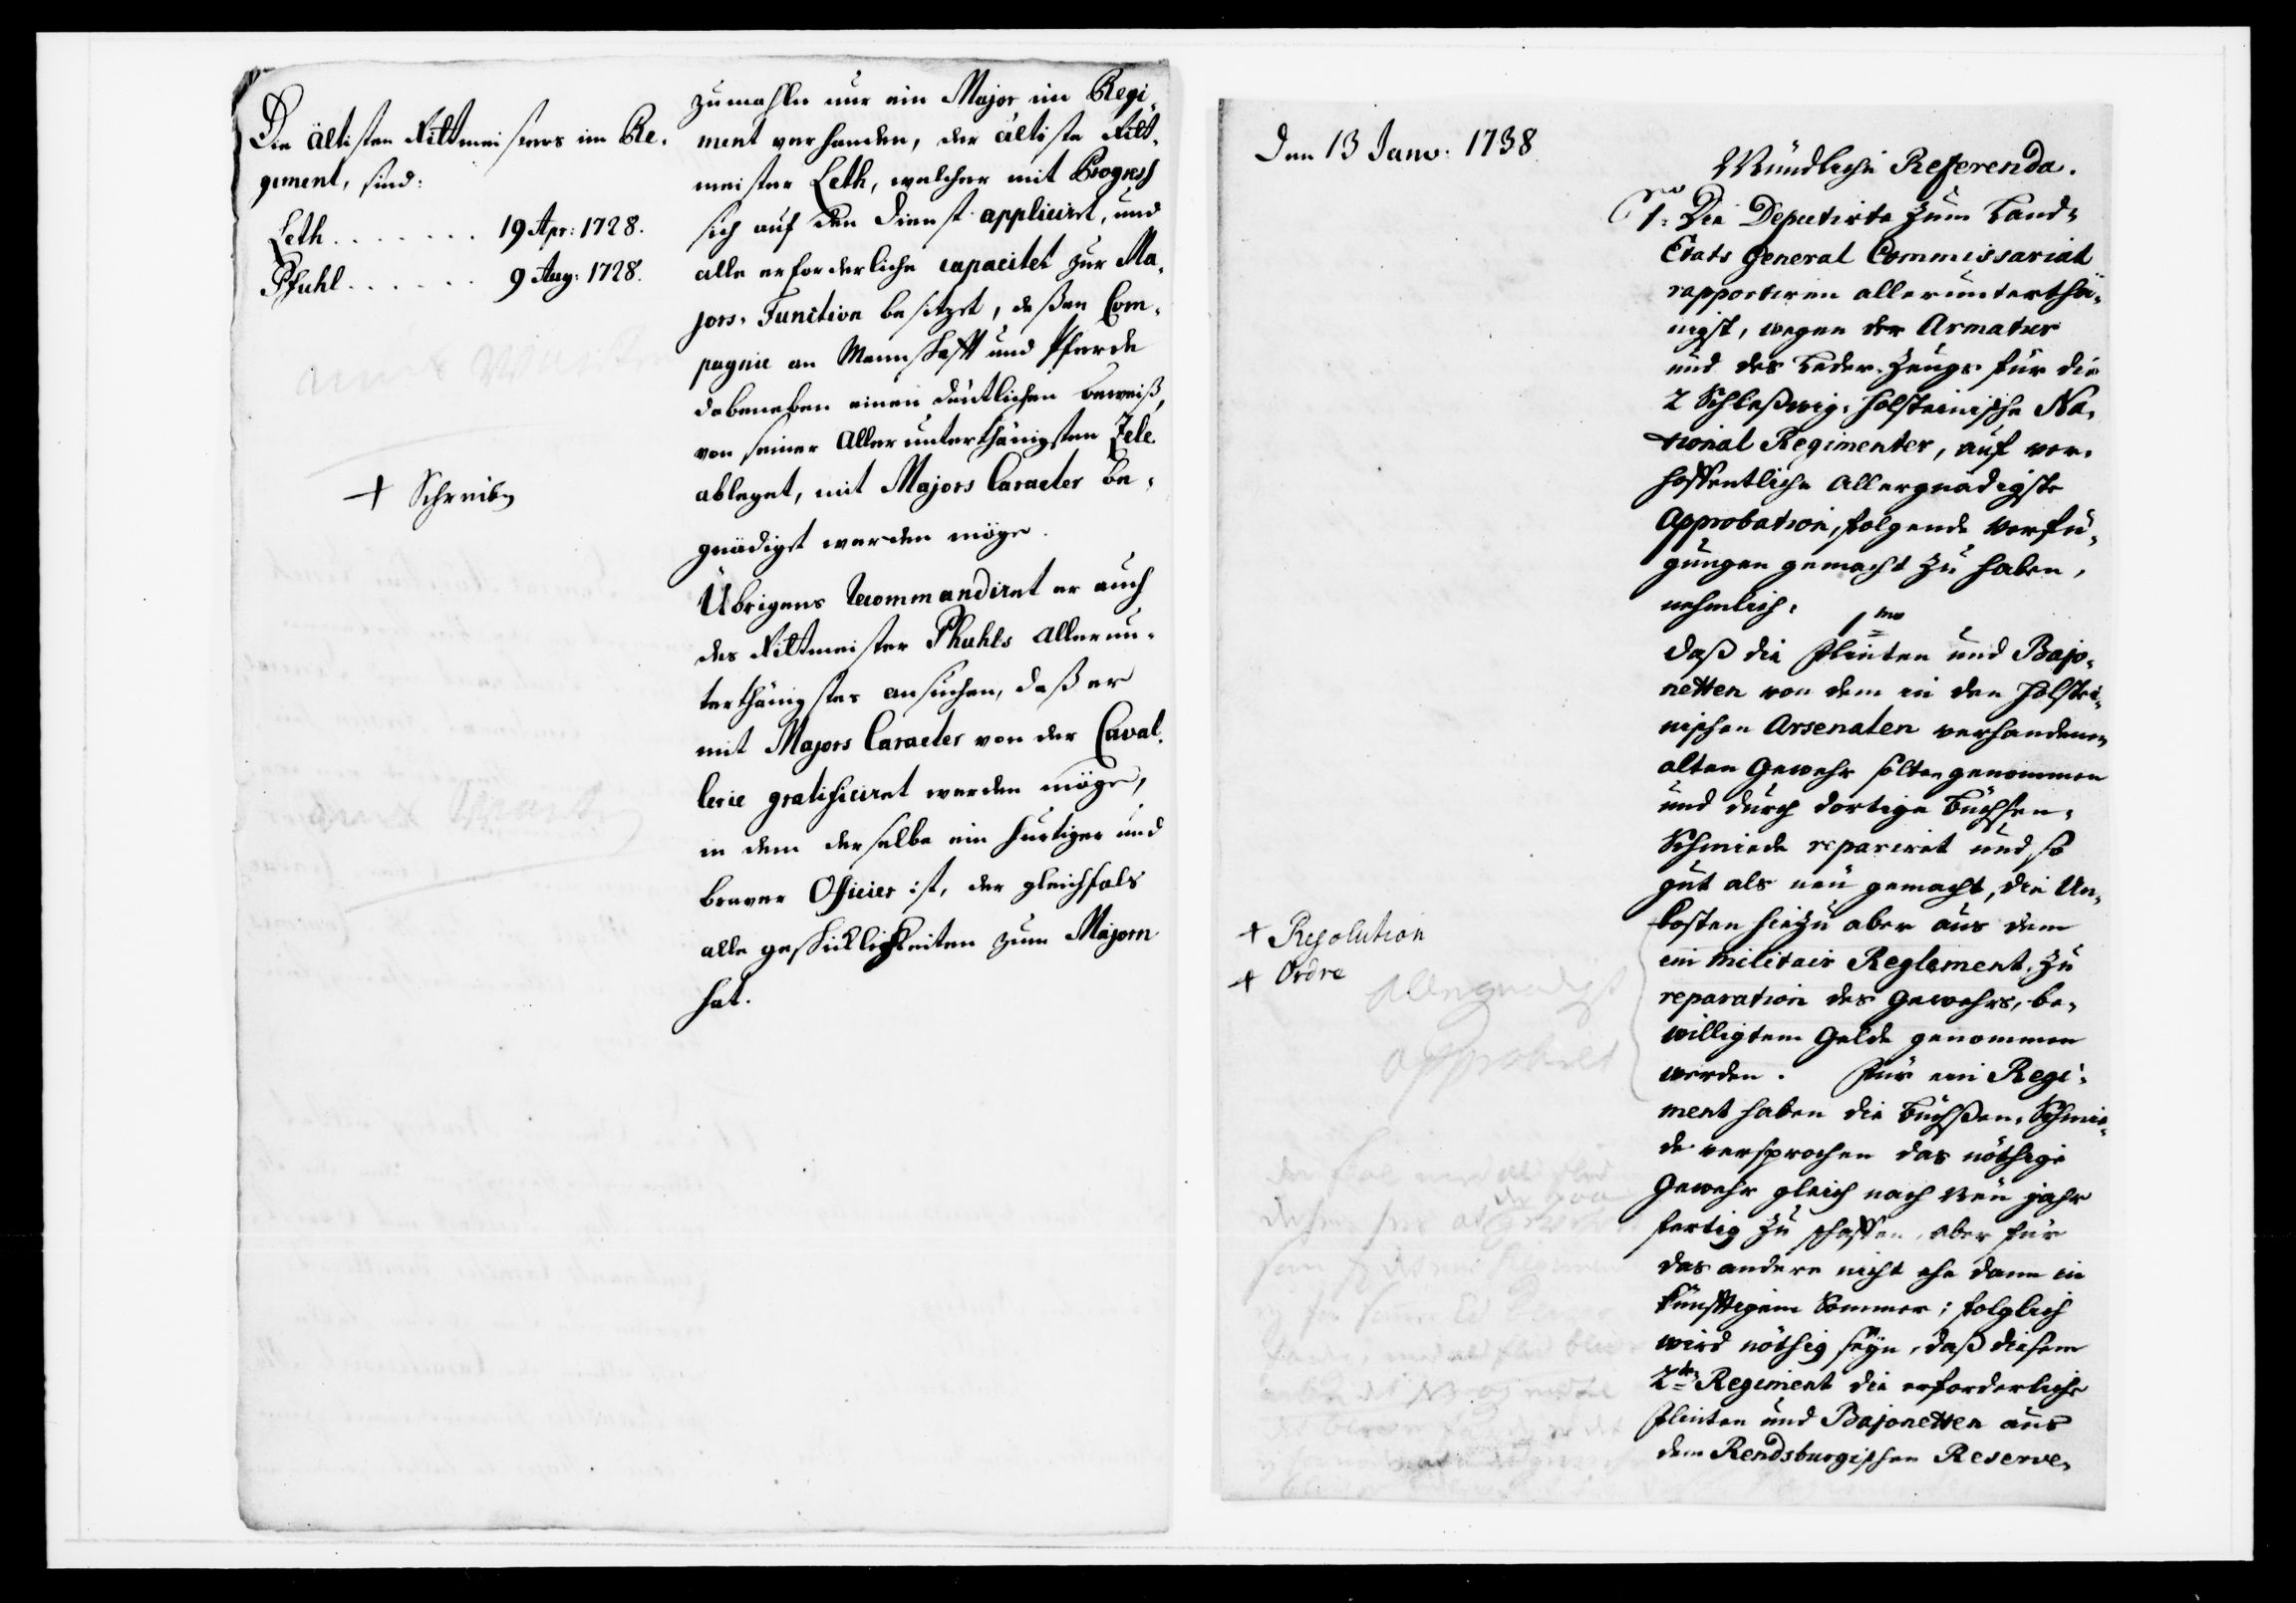 Die ältisten Rittmeisters im Re-
giment, sind:
Leth . . . . . . . 19 Apr: 1728.
Pfuhl . . . . . . 9 Aug: 1728.
+ Schreiben
zumahlen nur ein Major im Regi-
ment verhanden, der ältiste Ritt-
meister Leth, welcher mit Progress
sich auf den Dienst appliciret, und
alle erforderliche capacitet zur Ma-
jors-Function besitzet, deßen Com-
pagnie an Mannschafft und Pferde
dabeneben einen deütlichen beweiß,
von seiner allerunterthänigsten Zele
ableget, mit Majors Caracter be-
gnädiget werden möge.
Übrigens recommandiret er auch
des Rittmeister Phuhls allerun-
terthänigstes ansuchen, daß er
mit Majors Caracter von der Caval-
lerie gratificiret werden möge,
in dem derselbe ein hurtiger und
braver Officier ist, der gleichfals
alle geschicklichkeiten zum Majorn
hat.
Den 13 Janv. 1738
+ Resolution
+ Ordre
Allergnädigst
approbirt
Mündliche Referenda.
1. Die Deputirte zum Land-
Etats General Commissariat
rapportiren allerunterthä-
nigst, wegen der Armatur
und des Leder-Zeugs für die
2 Schleßwig-Holsteinische Na-
tional Regimenter, auf ver-
hoffentliche allergnädigste
Approbation, folgende verfü-
gungen gemacht zu haben,
nehmlich:
1mo
daß die Flinten und Bajo-
netten von dem in den Holstei-
nischen Arsenalen verhandenen
alten Gewehr solten genommen
und durch dortige Büchsen-
Schmiede repariret und so
gut als neü gemacht, die Un-
kosten hiezu aber aus dem
im Militair Reglement zu
reparation des Gewehrs, be-
willigtem Gelde genommen
werden. Für ein Regi-
ment haben die Büchßen-Schmie-
de versprochen das nöthige
Gewehr gleich nach Neü jahr
fertig zu schaffen, aber für
das andere nicht ehe dann in
künfftigem Sommer; folglich
wird nöthig seyn, daß diesem
2ten Regiment die erforderliche
Flinten und Bajonetten aus
dem Rendsburgischen Reserve-